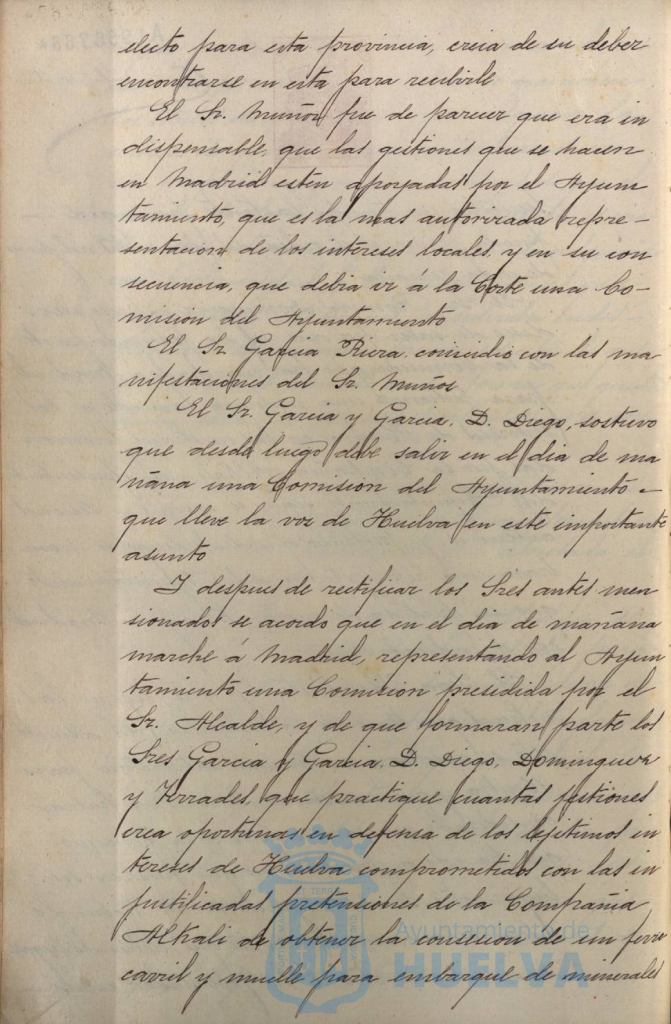 electo para esta provincia, creia de su deber
encontrarse en esta para recibirle
El Sr. Muñoz fue de parecer que era in
dispensable, que las gestiones que se hacen
en Madrid esten apoyadas por el Ayun
tamiento, que es la mas autorizada repre-
sentacion de los intereses locales, y en su con
secuencia, que debia ir á la Corte una Co-
mision del Ayuntamiento
El Sr. Garcia Riera coincidio con las ma
nifestaciones del Sr. Muñoz
El Sr. Garcia y Garcia, D. Diego, sostuvo
que desde luego debe salir en el dia de ma
ñana una Comision del Ayuntamiento
que lleve la voz de Huelva en este importante
asunto
I despues de rectificar los Sres antes men
sionados se acordo que en el dia de mañana
marche á Madrid, representando al Ayun
tamiento una Comision presidida por el
Sr. Alcalde, y de que formaran parte los
Sres Garcia y Garcia, D. Diego, Dominguez
y que practique cuantas gestiones
crea oportunas en defensa de los lejitimos in
tereses de Huelva comprometidos con las in
justificadas pretensiones de la Compañia
Alkali de obtener la consesion de un ferro
carril y muelle para embarque de minerales
Ayuntamiento de
HUELVA